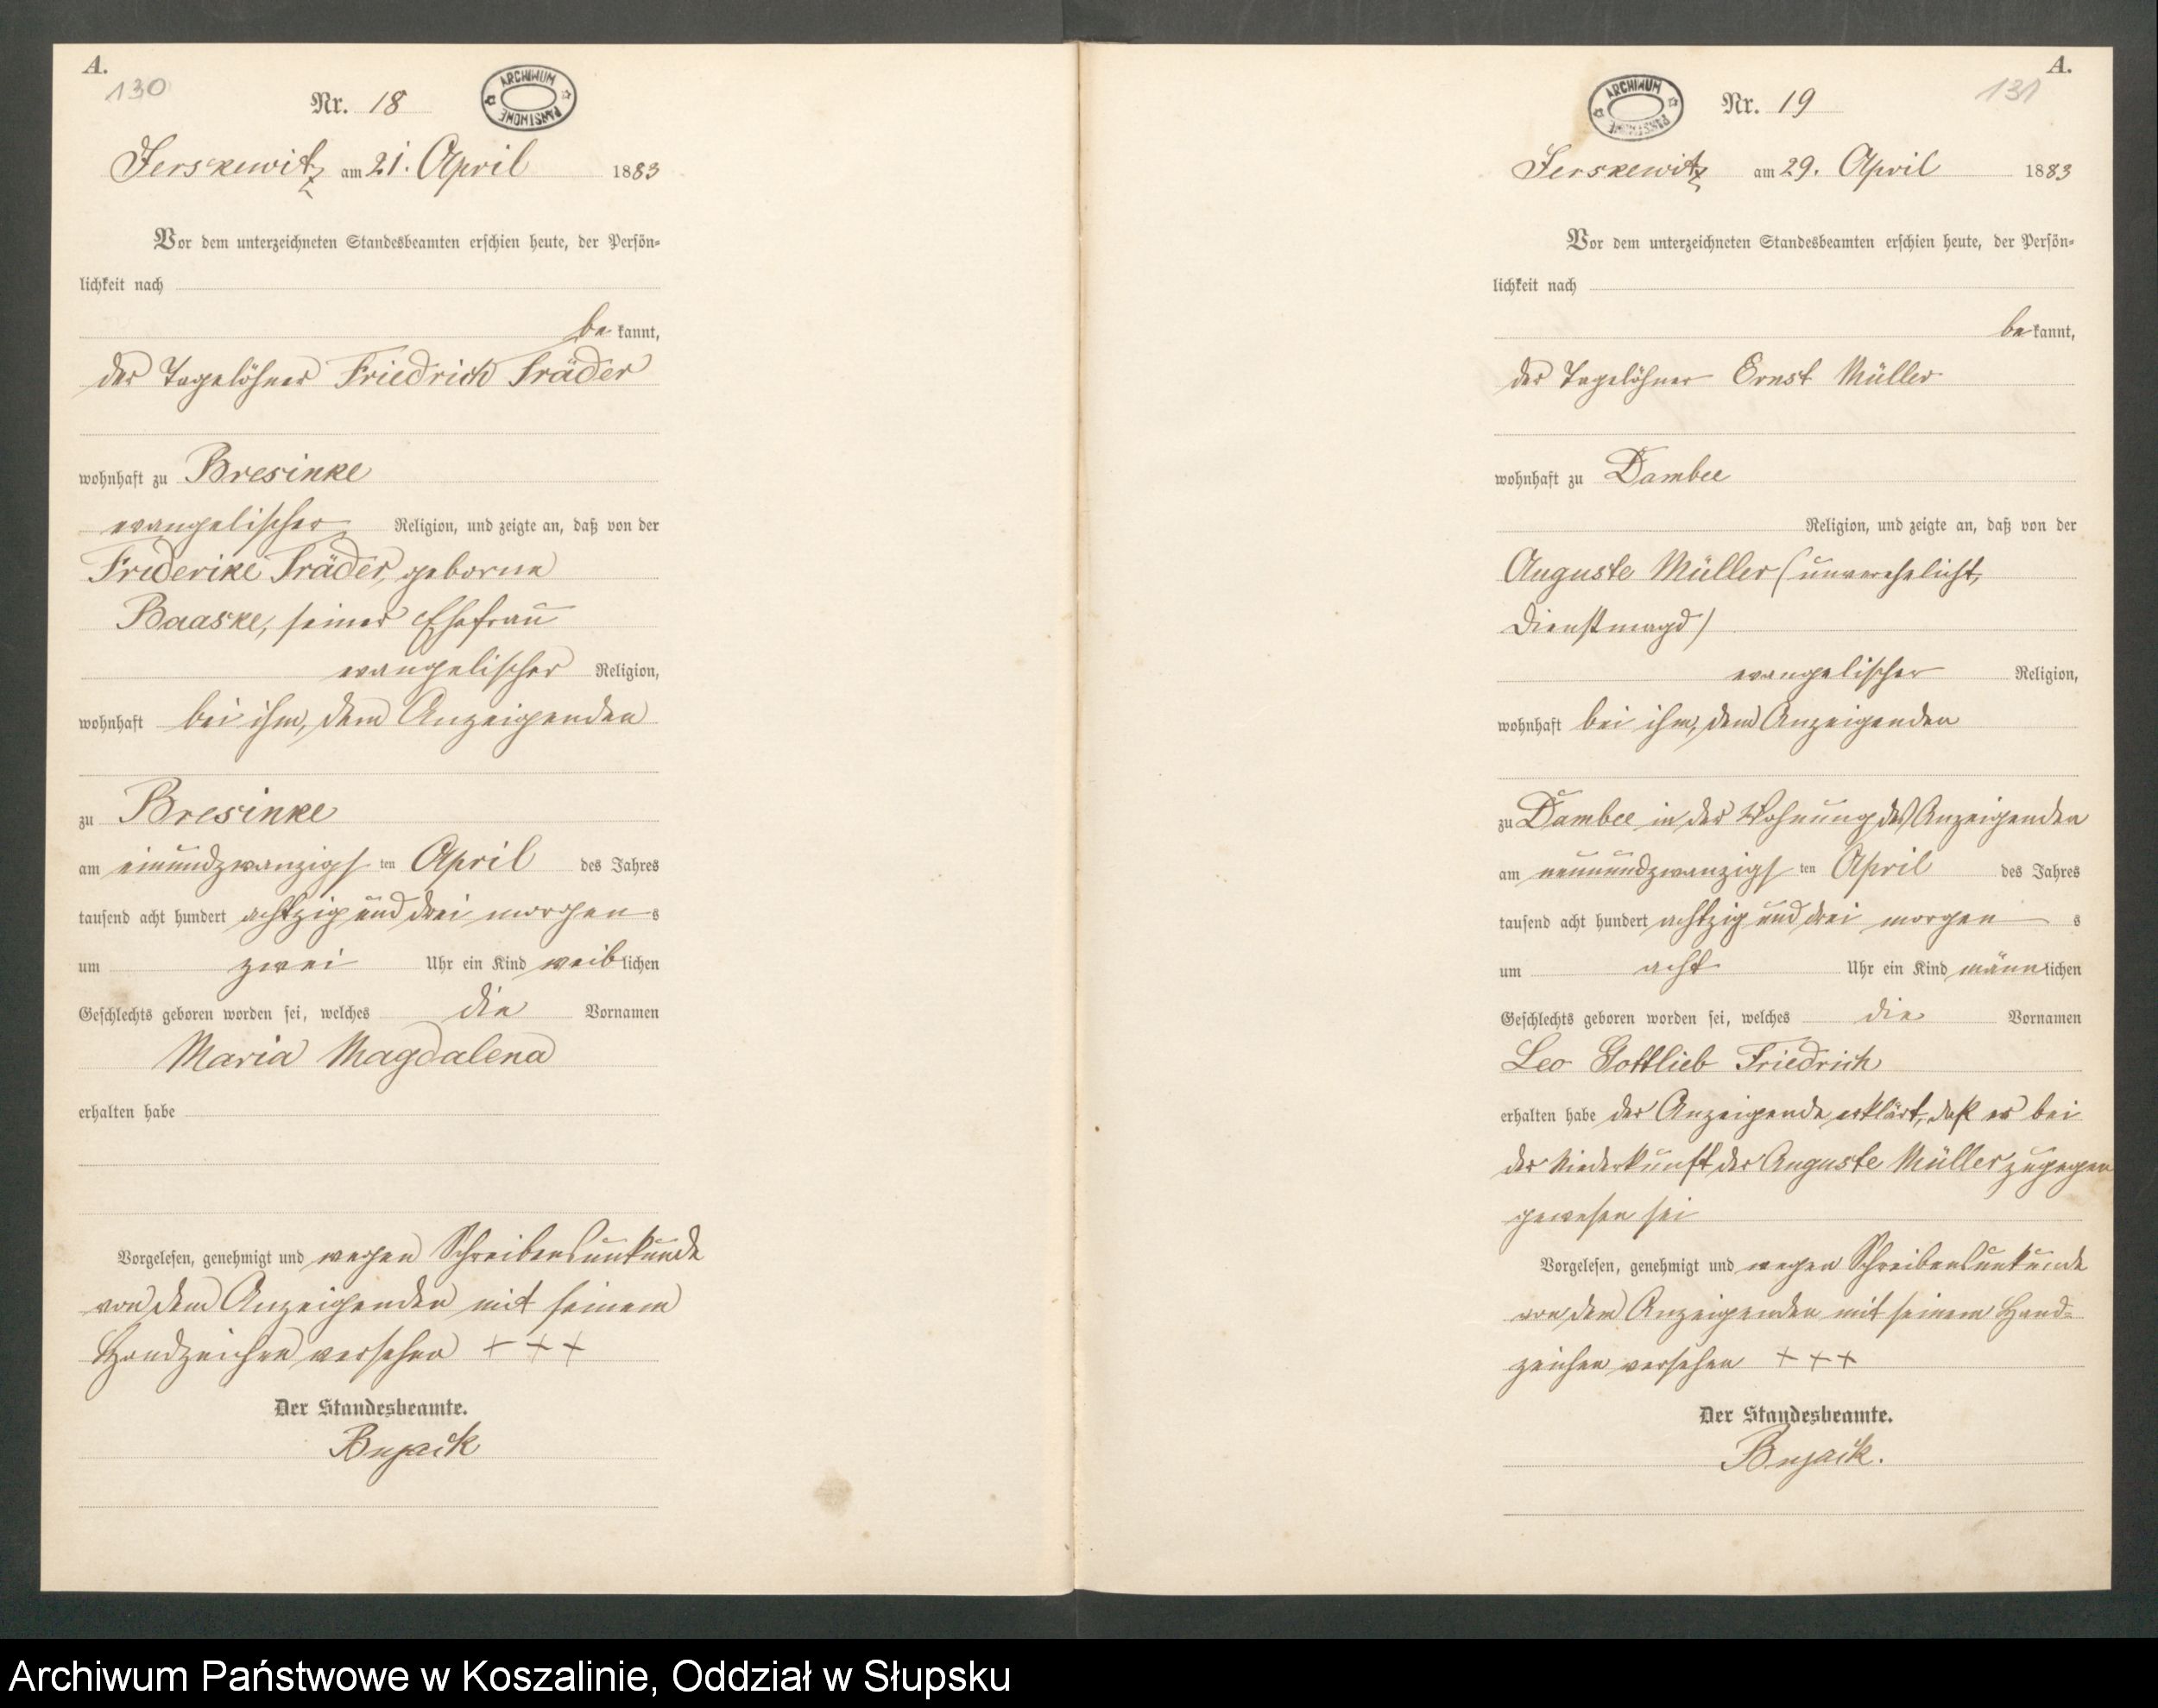 A.
130
Nr. 18
ARCHIWUM PAŃSTWOWE
Jerskewitz am 21. April 1883
Vor dem unterzeichneten Standesbeamten erschien heute, der Persön-
lichkeit nach
be kannt,
der Tagelöhner Friedrich Träder
wohnhaft zu Bresinke
evangelischer Religion, und zeigte an, daß von der
Friderike Träder, geborne
Baaske, seiner Ehefrau
evangelischer Religion,
wohnhaft bei ihm, dem Anzeigenden
zu Bresinke
am einundzwanzigs ten April des Jahres
tausend acht hundert achtzig und drei morgen s
um zwei Uhr ein Kind weib lichen
Geschlechts geboren worden sei, welches die Vornamen
Maria Magdalena
erhalten habe
Vorgelesen, genehmigt und wegen Schreibensunkunde
von dem Anzeigenden mit seinem
Handzeichen versehen + + +
Der Standesbeamte.
Bujack
A.
131
ARCHIWUM PAŃSTWOWE
Nr. 19
Jerskewitz am 29. April 1883
Vor dem unterzeichneten Standesbeamten erschien heute, der Persön-
lichkeit nach
be kannt,
der Tagelöhner Ernst Müller
wohnhaft zu Dambee
Religion, und zeigte an, daß von der
Auguste Müller (unverehelicht,
Dienstmagd)
evangelischer Religion,
wohnhaft bei ihm, dem Anzeigenden
zu Dambee in der Wohnung des Anzeigenden
am neunundzwanzigs ten April des Jahres
tausend acht hundert achtzig und drei morgen s
um acht Uhr ein Kind männ lichen
Geschlechts geboren worden sei, welches die Vornamen
Leo Gottlieb Friedrich
erhalten habe der Anzeigende erklärt, daß er bei
der Niederkunft der Auguste Müller zugegen
gewesen sei
Vorgelesen, genehmigt und wegen Schreibensunkunde
von dem Anzeigenden mit seinem Hand-
zeichen versehen + + +
Der Standesbeamte.
Bujack.
Archiwum Państwowe w Koszalinie, Oddział w Słupsku